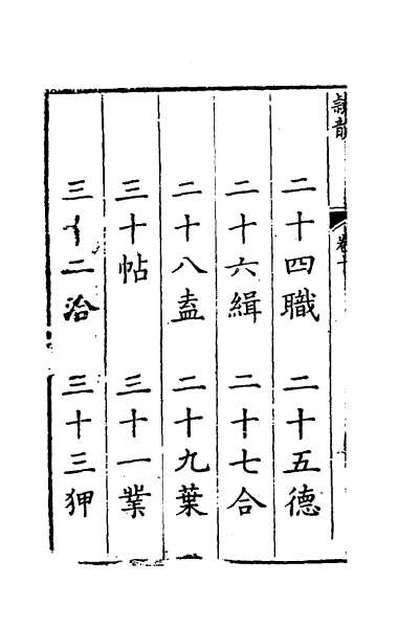 隸韻 卷十
二十四職 二十五德
二十六緝 二十七合
二十八盍 二十九葉
三十帖 三十一業
三十二洽 三十三狎